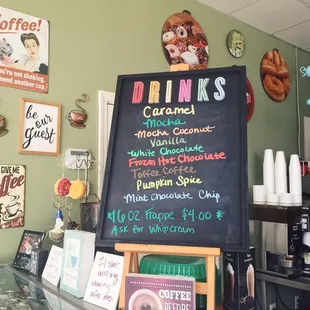 Coffee!
If you're
not shaking,
you need
another cup
be our
guest
GIVE ME
Coffee
DRINKS
Caramel
Mocha
Mocha Coconut
Vanilla
White Chocolate
Frozen Hot Chocolate
Toffee Coffee
Pumpkin Spice
Mint Chocolate Chip
16 oz Frappe $4.00
Ask for Whip cream
COFFEE
BEFORE